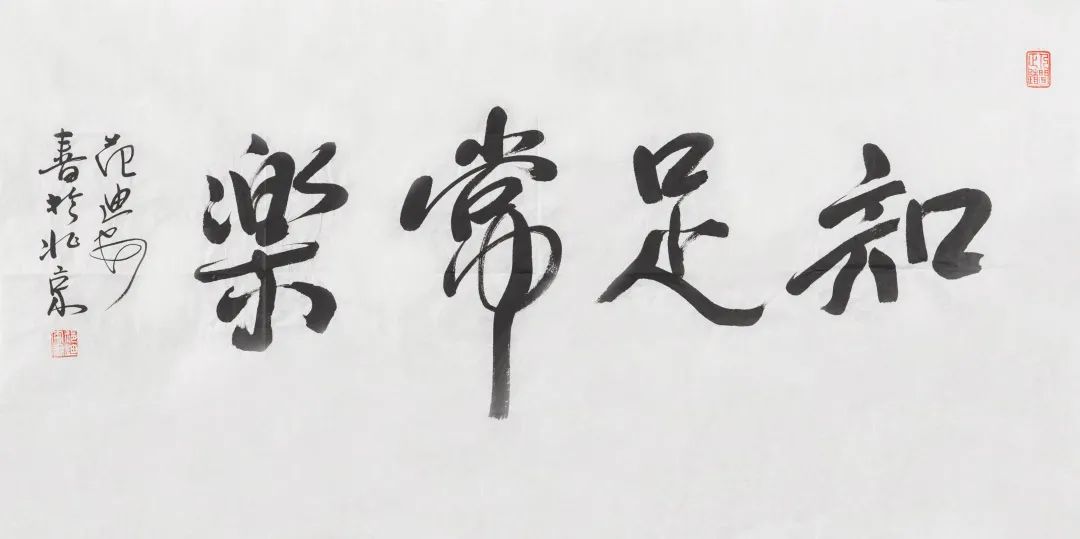 知足常樂
范迪安
書於北京